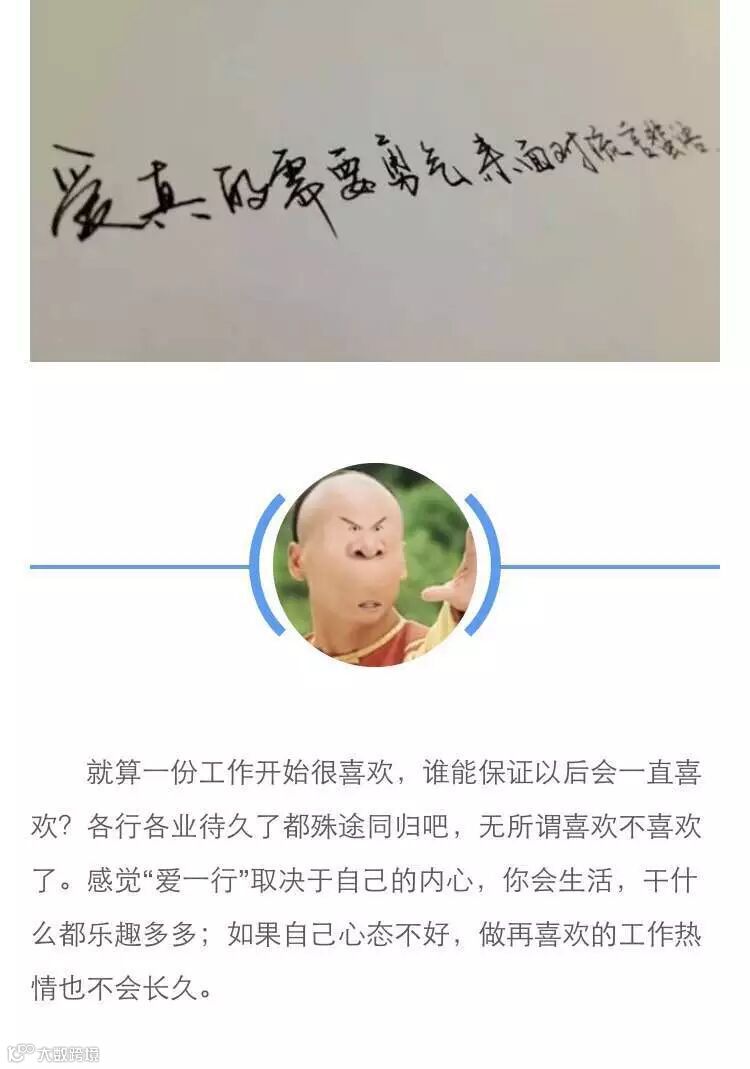 爱真的需要勇气来面对流言蜚语
就算一份工作开始很喜欢，谁能保证以后会一直喜
欢？各行各业待久了都殊途同归吧，无所谓喜欢不喜欢
了。感觉“爱一行”取决于自己的内心，你会生活，干什
么都乐趣多多；如果自己心态不好，做再喜欢的工作热
情也不会长久。
100 大数跨境